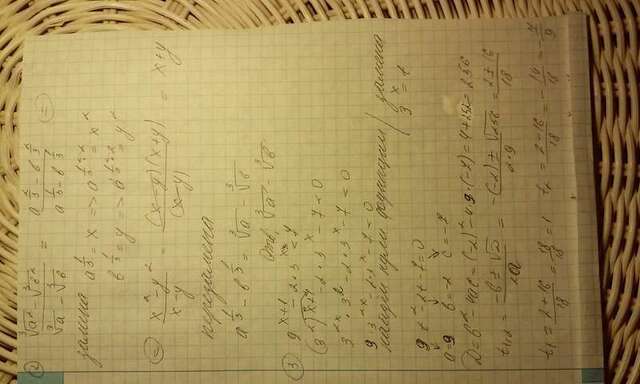 ② (∛a² - ∛b²)/(∛a - ∛b) = (a^(2/3) - b^(2/3))/(a^(1/3) - b^(1/3)) =
замена a^(1/3) = x => a^(1/3·2) = x²
b^(1/3) = y => a^(1/3·2) = y²
= (x² - y²)/(x - y) = ((x - y)(x + y))/(x - y) = x + y
перезамена
a^(1/3) - b^(1/3) = ∛a - ∛b
Отв, ∛a - ∛b
③ 9^(x+1) - 2·3^x < 7
3^(2(x+1)) - 2·3^x - 7 < 0
3^(2x)·3² - 2·3^x - 7 < 0
9·3^(2x) - 2·3^x - 7 < 0
найдем нули функции / замена
3^x = t
9t² - 2t - 7 = 0
a = 9 b = -2 c = -7
D = b² - 4ac = (-2)² - 4·9·(-7) = 4 + 252 = 256
t₁,₂ = (-b ± √D)/2a = (-(-2) ± √256)/(2·9) = (2 ± 16)/18
t₁ = (2 + 16)/18 = 18/18 = 1 t₂ = (2 - 16)/18 = -14/18 = -7/9